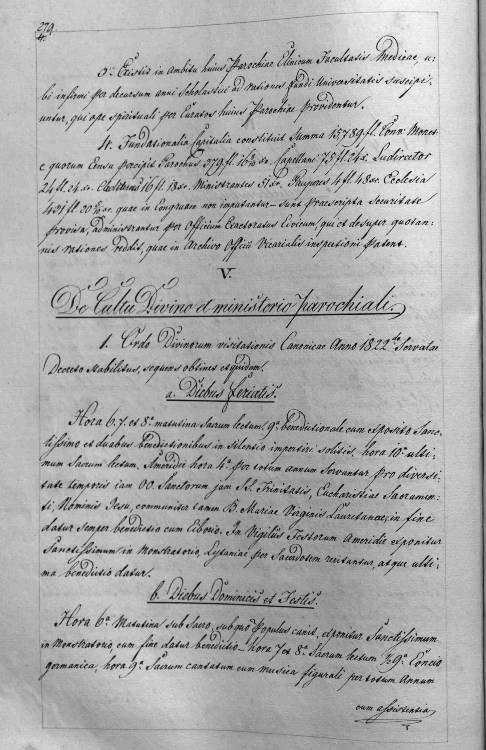 279.
3º Existit in Ambitu huius Parochiae Clinicum Facultatis Medicae, u-
bi infirmi per decursum anni Scholastici ad rationes fundi Universitatis suscipi-
untur, qui ope spirituali per Curatos huius Parochiae providentur.
4. Fundationalia Capitalia constituit Summa 15789 fl. Conv. Monet.
e quorum Censu percipit Parochus 379 fl. Capellani 75 fl. 24 xr. Ludirector
24 fl. 24 xr. 16 fl. 18 xr. Ministrantes 51 xr. Pauperes 4 fl. 48 xr. Ecclesia
431 fl. quae in Congruam non imputantur – sunt praescripta Securitate
provisa, administrantur per Officium Exactoratus Civicum, qui et desuper quotan-
nis rationes reddit, quae in Archivo Officii Vicarialis inspectioni patent.
V.
De Cultu Divino et ministerio parochiali.
1. Ordo Divinorum visitationis Canonicae Anno 1822do Servatae
Decreto Stabilitus, sequens obtinet et quidem.
a. Diebus ferialis.
Hora 6. 7. et 8a matutina Sacrum lectum. 9a benedictionale cum exposito Sanc-
tissimo et duabus benedictionibus in silentio impertiri solitis, hora 10a ulti-
mum Sacrum lectum. Ameridie hora 4a per totum annum Servuntur pro diversi-
tate temporis iam OO. Sanctorum jam SS. Trinitatis, Eucharistiae Sacramen-
ti, Nominis Jesu, communiter tamen B. Mariae Virginis Lauretanae, in fine
datur semper benedictio cum Ciborio. In Vigiliis Festorum Ameridie exponitur
Sanctissimum in Monstratorio, Lytaniae per Sacerdotem recitantur, atque ulti-
ma benedictio datur.
b. Diebus Dominicis et Festis.
Hora 6a Matutina sub Sacro, sub quo Populus canit, exponitur Sanctissimum
in Monstratorio, cum fine datur benedictio – hora 7 et 8a Sacrum lectum ½9a Concio
germanica, hora 9a Sacrum cantatum cum musica figurali per totum Annum
cum assistentia